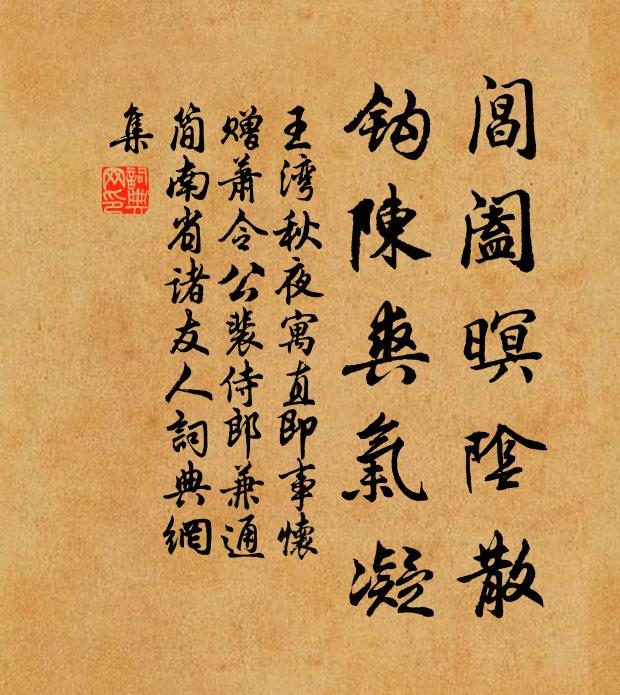 閶闔暝陰散
鈎陳爽氣凝
王湾秋夜寓直即事懷
贈蕭令公裴侍郎兼通
简南省諸友人詞典網
集
詞典
网印